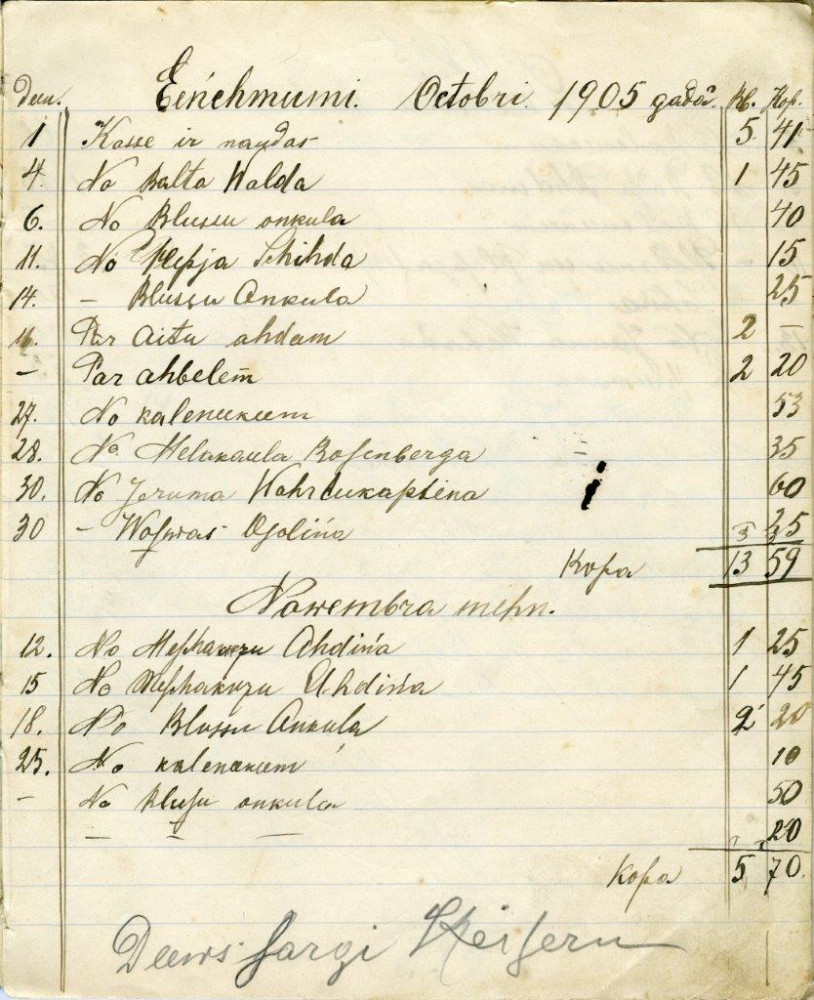 Deen. Eeńehmumi. Octobri. 1905 gadâ. Rb. Kop.
1 Kasse ir naudas 5 41
4. No Balta Walda 1 45
6. No Blussu onkula 40
11. No Schihda 15
14. — Blussu Onkula 25
16. Par aitu ahdam 2 —
— Par ahbelem̄ 2 20
27. No kalenukeem 53
28. No Melnkaula Rosenberga 35
30. No Jeruma 60
30 — Ogolińa 25
Kopa 13 59
Nowembra mehn.
12. No Ahdińa 1 25
15 No Ahdińa 1 45
18. No Blussu Onkula 2 20
25. No kalenukeem 10
— No Blusu onkula 50
— — — 20
Kopa 5 70.
Deews sargi Keiseru